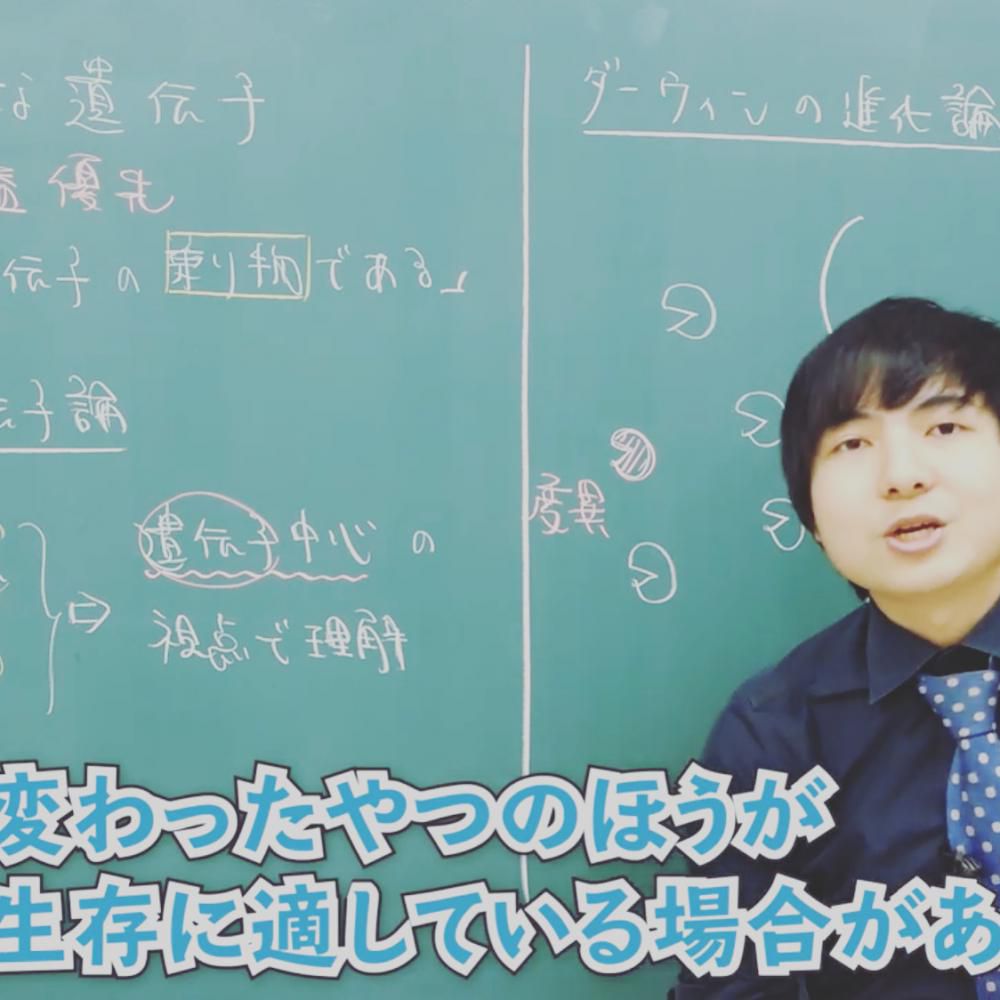 な遺伝子
益優先
伝子の乗り物である」
伝子論
遺伝子中心の
視点で理解
ダーウィンの進化論
変異
変わったやつのほうが
生存に適している場合があ